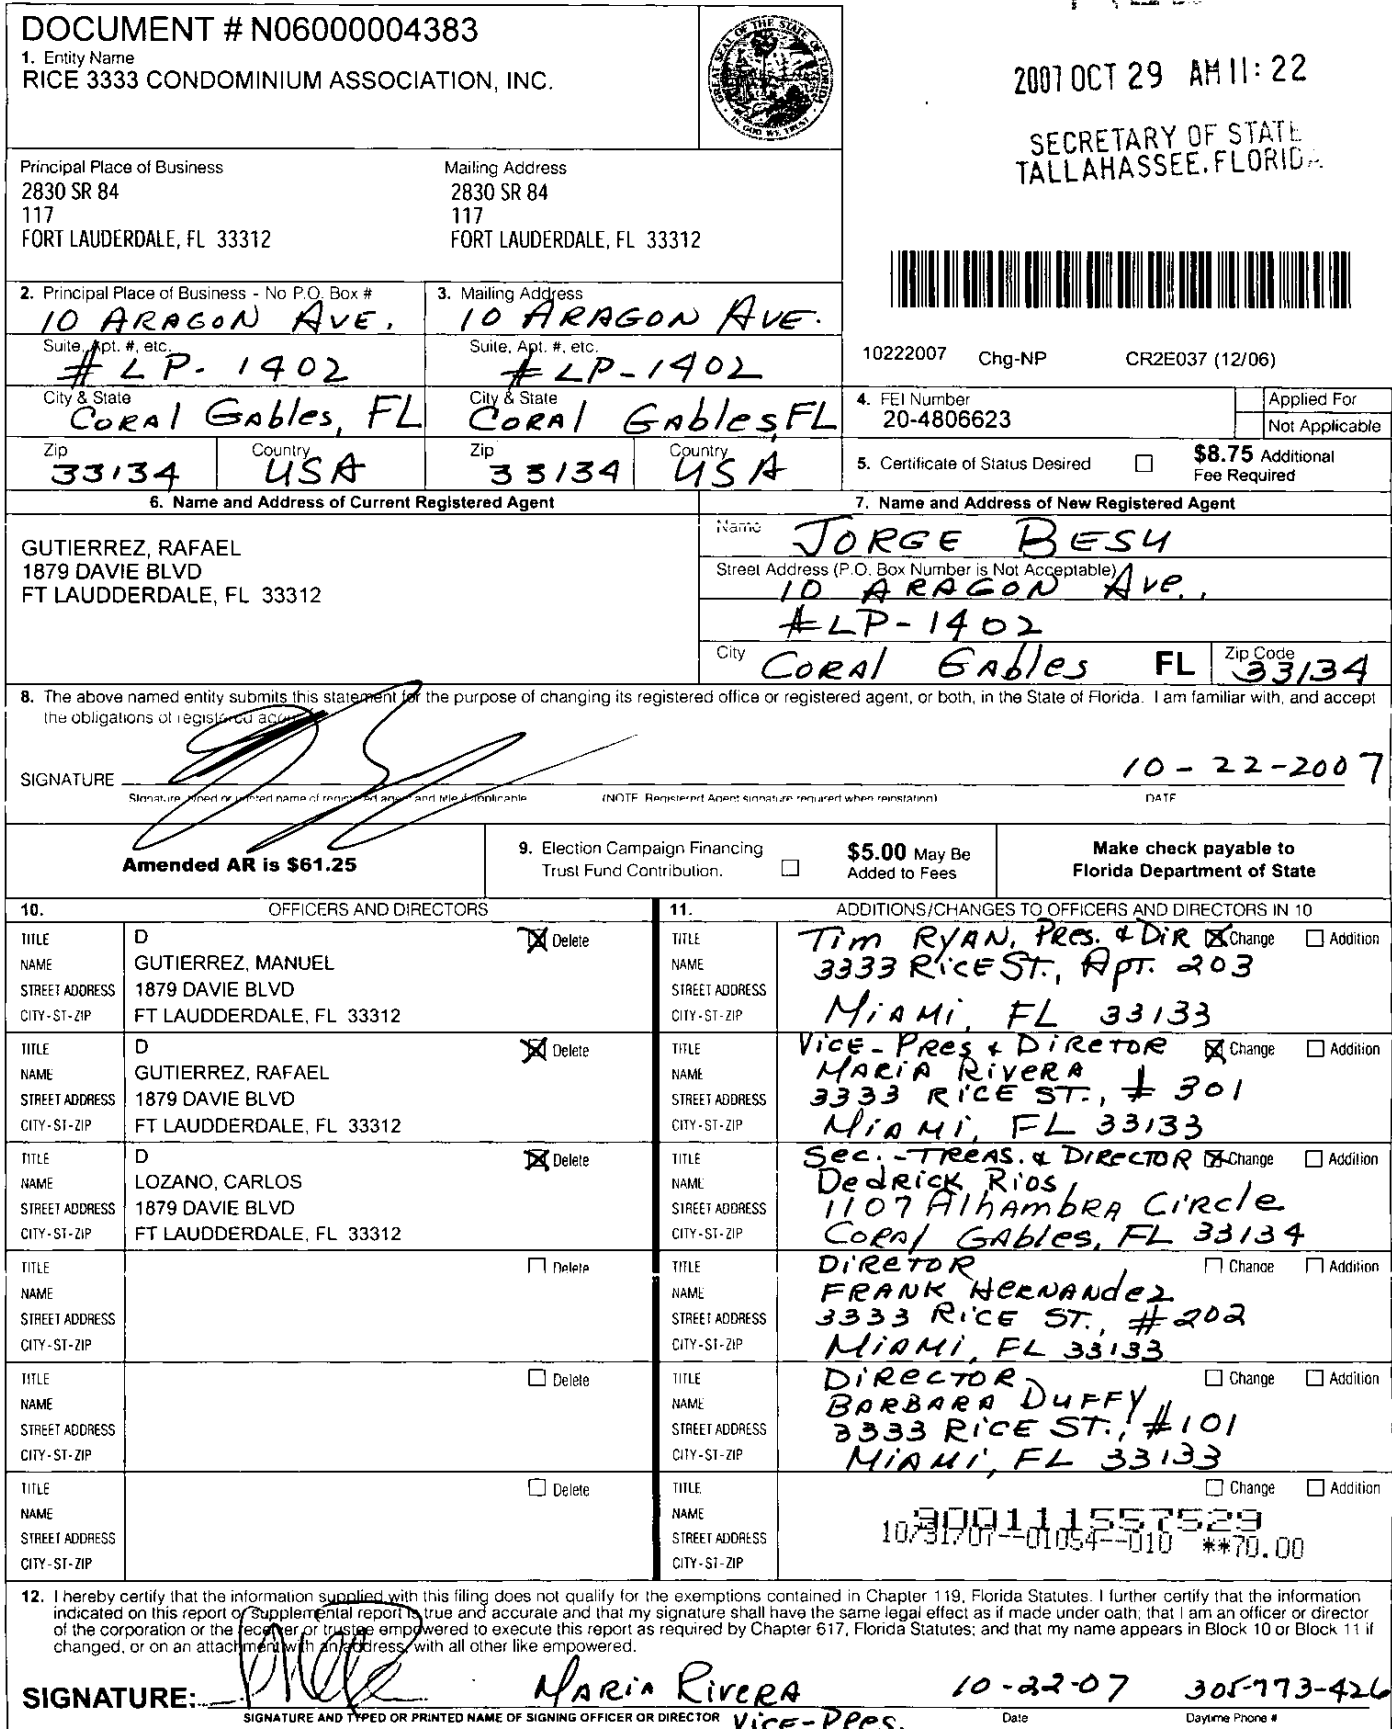 DOCUMENT # N06000004383
1. Entity Name
RICE 3333 CONDOMINIUM ASSOCIATION, INC.
GREAT SEAL OF THE STATE OF FLORIDA
IN GOD WE TRUST
2007 OCT 29 AM 11:22
SECRETARY OF STATE
TALLAHASSEE, FLORIDA
Principal Place of Business
2830 SR 84
117
FORT LAUDERDALE, FL 33312
Mailing Address
2830 SR 84
117
FORT LAUDERDALE, FL 33312
2. Principal Place of Business - No P.O. Box #
10 ARAGON AVE.
Suite, Apt. #, etc.
# LP-1402
City & State
CORAL GAbles, FL
Zip
33134
Country
USA
3. Mailing Address
10 ARAGON AVE.
Suite, Apt. #, etc.
# LP-1402
City & State
CORAl GAbles, FL
Zip
33134
Country
USA
10222007 Chg-NP CR2E037 (12/06)
4. FEI Number
20-4806623
Applied For
Not Applicable
5. Certificate of Status Desired
$8.75 Additional
Fee Required
6. Name and Address of Current Registered Agent
GUTIERREZ, RAFAEL
1879 DAVIE BLVD
FT LAUDDERDALE, FL 33312
7. Name and Address of New Registered Agent
Name
JORGE BESU
Street Address (P.O. Box Number is Not Acceptable)
10 ARAGON Ave.,
#LP-1402
City
CORAl GAbles
FL
Zip Code
33134
8. The above named entity submits this statement for the purpose of changing its registered office or registered agent, or both, in the State of Florida. I am familiar with, and accept
the obligations of registered agent.
SIGNATURE
10-22-2007
Signature, typed or printed name of registered agent and title if applicable
(NOTE: Registered Agent signature required when reinstating)
DATE
Amended AR is $61.25
9. Election Campaign Financing
Trust Fund Contribution.
$5.00 May Be
Added to Fees
Make check payable to
Florida Department of State
10. OFFICERS AND DIRECTORS
TITLE D Delete
NAME GUTIERREZ, MANUEL
STREET ADDRESS 1879 DAVIE BLVD
CITY-ST-ZIP FT LAUDDERDALE, FL 33312
TITLE D Delete
NAME GUTIERREZ, RAFAEL
STREET ADDRESS 1879 DAVIE BLVD
CITY-ST-ZIP FT LAUDDERDALE, FL 33312
TITLE D Delete
NAME LOZANO, CARLOS
STREET ADDRESS 1879 DAVIE BLVD
CITY-ST-ZIP FT LAUDDERDALE, FL 33312
TITLE Delete
NAME
STREET ADDRESS
CITY-ST-ZIP
TITLE Delete
NAME
STREET ADDRESS
CITY-ST-ZIP
TITLE Delete
NAME
STREET ADDRESS
CITY-ST-ZIP
11. ADDITIONS/CHANGES TO OFFICERS AND DIRECTORS IN 10
TITLE Tim RYAN, PRes. & DiR Change Addition
NAME 3333 RiCE ST., APT. 203
STREET ADDRESS
CITY-ST-ZIP MiAMi, FL 33133
TITLE ViCe-PRes & DiReTOR Change Addition
NAME MARiA RiveRA
STREET ADDRESS 3333 RiCE ST., # 301
CITY-ST-ZIP MiAMi, FL 33133
TITLE Sec.-TREAS. & DIRECTOR Change Addition
NAME DedRick Rios
STREET ADDRESS 1107 AlhAmbRA CiRcle
CITY-ST-ZIP CORAl GAbles, FL 33134
TITLE DiReTOR Change Addition
NAME FRANK HeRNANdez
STREET ADDRESS 3333 RiCE ST., #202
CITY-ST-ZIP MiAMi, FL 33133
TITLE DiRecTOR Change Addition
NAME BARBARA DUFFY
STREET ADDRESS 3333 RiCE ST., #101
CITY-ST-ZIP MiAMi, FL 33133
TITLE Change Addition
NAME 900111557529
STREET ADDRESS 10/31/07--01054--010 **70.00
CITY-ST-ZIP
12. I hereby certify that the information supplied with this filing does not qualify for the exemptions contained in Chapter 119, Florida Statutes. I further certify that the information
indicated on this report or supplemental report is true and accurate and that my signature shall have the same legal effect as if made under oath; that I am an officer or director
of the corporation or the receiver or trustee empowered to execute this report as required by Chapter 617, Florida Statutes; and that my name appears in Block 10 or Block 11 if
changed, or on an attachment with an address, with all other like empowered.
SIGNATURE: MARiA RiveRA 10-22-07 305-773-426
SIGNATURE AND TYPED OR PRINTED NAME OF SIGNING OFFICER OR DIRECTOR Vice-PRes. Date Daytime Phone #